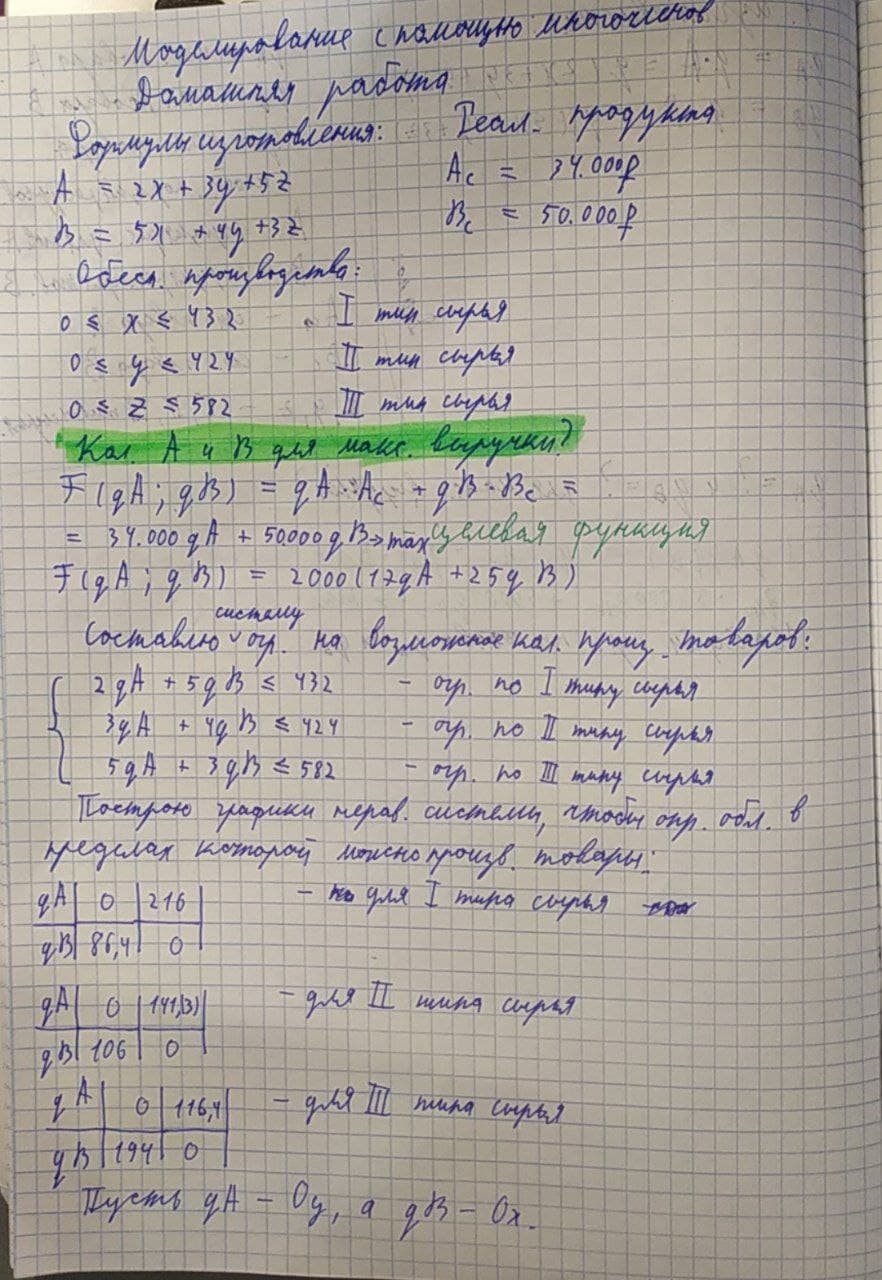 Моделирование с помощью многочленов
Домашняя работа
Формулы изготовления: Реал. продукта
A = 2x + 3y + 5z Ac = 34.000₽
B = 5x + 4y + 3z Bc = 50.000₽
Обесп. производства:
0 ≤ x ≤ 432 I тип сырья
0 ≤ y ≤ 424 II тип сырья
0 ≤ z ≤ 582 III тип сырья
Кол. A и B для макс. выручки?
F(qA; qB) = qA · Ac + qB · Bc =
= 34.000qA + 50.000qB → max целевая функция
F(qA; qB) = 2000(17qA + 25qB)
систему
Составлю огр. на возможное кол. произ. товаров:
2qA + 5qB ≤ 432 – огр. по I типу сырья
3qA + 4qB ≤ 424 – огр. по II типу сырья
5qA + 3qB ≤ 582 – огр. по III типу сырья
Построю графики нерав. системы, чтобы опр. обл. в
пределах которой можно произв. товары:
qA 0 216 – для I типа сырья
qB 86,4 0
qA 0 141,(3) – для II типа сырья
qB 106 0
qA 0 116,4 – для III типа сырья
qB 194 0
Пусть qA – Oy, а qB – Ox.